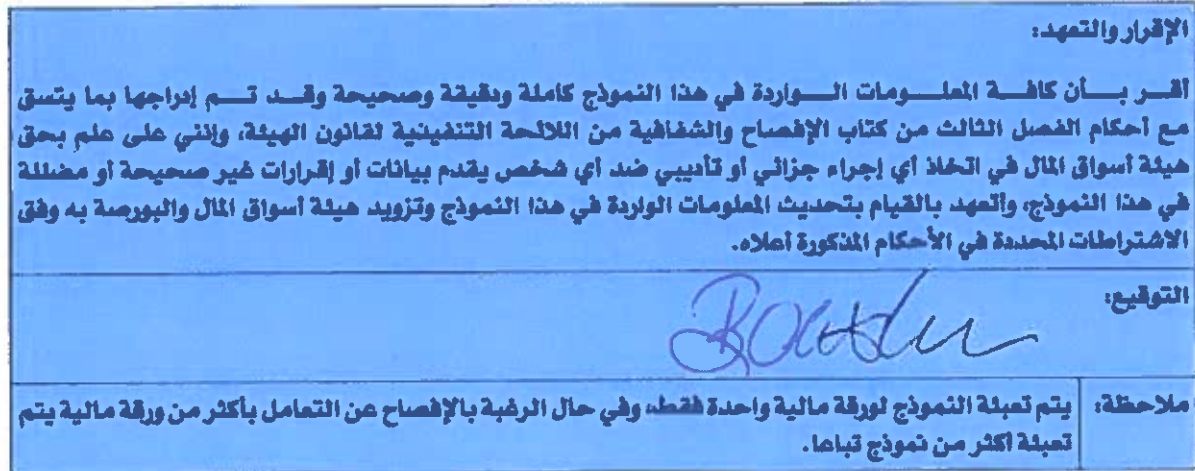 الإقرار والتعهد:
أقــر بـــأن كافـــة المعلـــومات الـــواردة في هذا النموذج كاملة ودقيقة وصحيحة وقــد تـــم إدراجها بما يتسق
مع أحكام الفصل الثالث من كتاب الإفصاح والشفافية من اللائحة التنفيذية لقانون الهيئة، وإنني على علم بحق
هيئة أسواق المال في اتخاذ أي إجراء جزائي أو تأديبي ضد أي شخص يقدم بيانات أو إقرارات غير صحيحة أو مضللة
في هذا النموذج، وأتعهد بالقيام بتحديث المعلومات الواردة في هذا النموذج وتزويد هيئة أسواق المال والبورصة به وفق
الاشتراطات المحددة في الأحكام المذكورة أعلاه.
التوقيع:
ملاحظة: يتم تعبئة النموذج لورقة مالية واحدة فقط، وفي حال الرغبة بالإفصاح عن التعامل بأكثر من ورقة مالية يتم
تعبئة أكثر من نموذج تباعا.